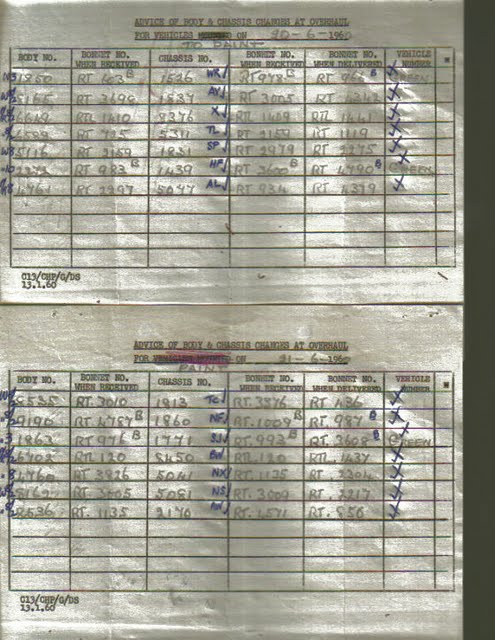 ADVICE OF BODY & CHASSIS CHANGES AT OVERHAUL
FOR VEHICLES ON 20-6-196
TO PAINT
BODY NO. BONNET NO. WHEN RECEIVED CHASSIS NO. BONNET NO. WHEN RECEIVED BONNET NO. WHEN DELIVERED VEHICLE NUMBER
RT 403 B 1526 WR RT 978 B GREEN
RT 3494 1537 AV RT 3005
RTL 1410 8376 X RTL 1409 RTL 1441
RT 725 5311 TL RT 2159 RT 1119
5116 RT 2159 1831 SP RT 2979 RT 2275
RT 983 B 1439 HF RT 3600 B RT 4790 B GREEN
4761 RT 2297 5047 AL RT 934 RT 4379
C13/CHP/G/DS
13.1.60
ADVICE OF BODY & CHASSIS CHANGES AT OVERHAUL
FOR ON 21-6-196
PAINT
BODY NO. BONNET NO. WHEN RECEIVED CHASSIS NO. BONNET NO. WHEN RECEIVED BONNET NO. WHEN DELIVERED VEHICLE NUMBER
8535 RT 3010 1913 TC RT 3896 RT 436
9190 RT 4787 B 1860 NF RT 1009 B RT 987 B
1863 RT 976 B 1771 SJ RT 993 B RT 3608 B GREEN
RTL 120 8450 BW RTL 120 RTL 1437
4760 RT 3826 5041 NX RT 1135 RT 2304
RT 3005 5081 NS RT 3009 RT 2217
8536 RT 1135 2170 RT 4571 RT 856
C13/CHP/G/DS
13.1.60